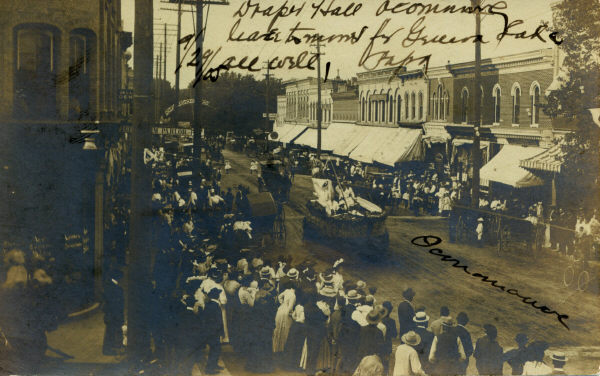 Draper Hall Oconomowoc
leave tomorrow for Green Lake
all well,
Papa
Oconomowoc